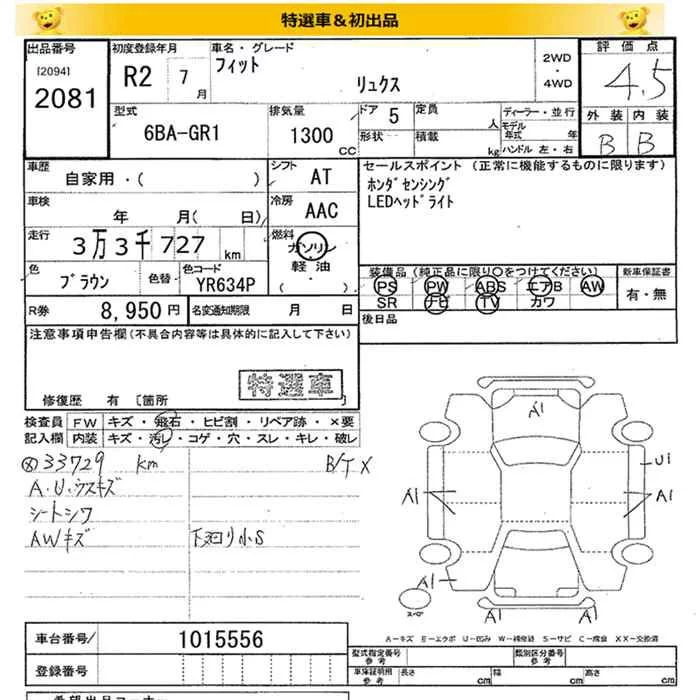 特選車＆初出品
出品番号
[2094]
2081
初度登録年月
R2 7月
車名・グレード
フィット
リュクス
2WD
・
4WD
評価点
4.5
外装 内装
B B
型式
6BA-GR1
排気量
1300 CC
ドア 5
形状
定員 人
積載 kg
ディーラー・並行
モデル年式 年
ハンドル 左・右
車歴
自家用・( )
シフト AT
車検
年 月( 日)
冷房 AAC
走行
3万3千727 km
燃料
ガソリン
軽・油
( )
色
ブラウン
色替
色コード
YR634P
R券 8,950円
名変通知期限 月 日
セールスポイント (正常に機能するものに限ります)
ホンダセンシング
LEDヘッドライト
装備品(純正品に限り○をつけてください)
PS PW ABS エアB AW
SR ナビ TV カワ
新車保証書
有・無
後日品
注意事項申告欄(不具合内容等は具体的に記入して下さい)
特選車
修復歴 有 [箇所 ]
検査員
記入欄
FW キズ・飛石・ヒビ割・リペア跡・×要
内装 キズ・汚レ・コゲ・穴・スレ・キレ・破レ
33729 km
B/T X
A・U・ウスキズ
シートシワ
AWキズ
下廻り小S
A1
U1
A1
A1
A1
スペア
A1
A1
A－キズ E－エクボ U－凹み W－補修跡 S－サビ C－腐食 XX－交換済
車台番号 1015556
登録番号
型式指定番号
参考
類別区分番号
参考
車庫証明用
参考
長さ cm
幅 cm
高さ cm
希望出品コーナー